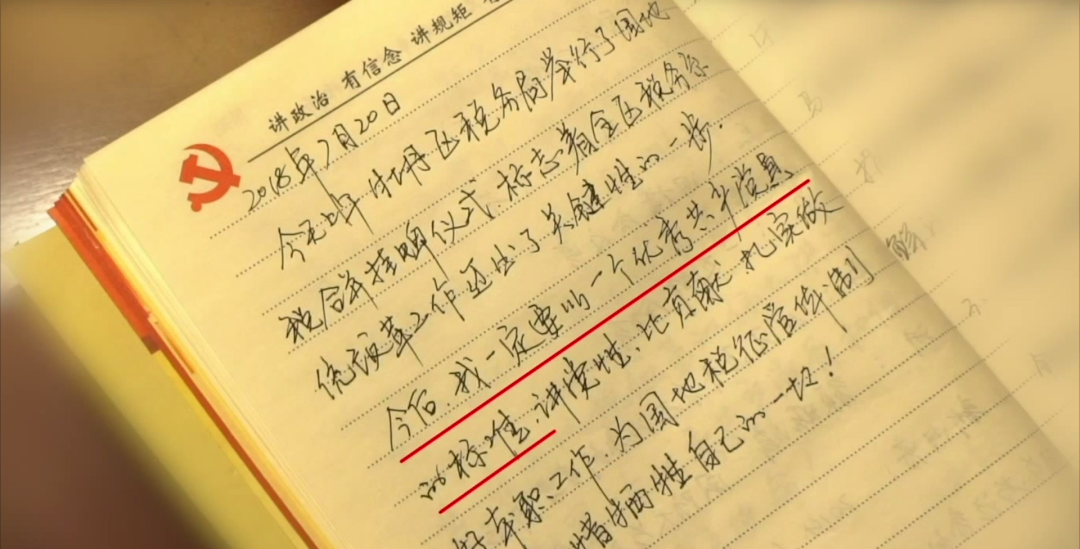 讲政治 有信念 讲规矩 有
2018年7月20日
今天上午牡丹区税务局举行了国地
税合并挂牌仪式，标志着全区税务系
统改革工作迈出了关键性的一步。
今后，我一定要以一个优秀共产党员
的标准，讲党性，比贡献，扎实做
好本职工作，为国地税征管体制
惜牺牲自己的一切！